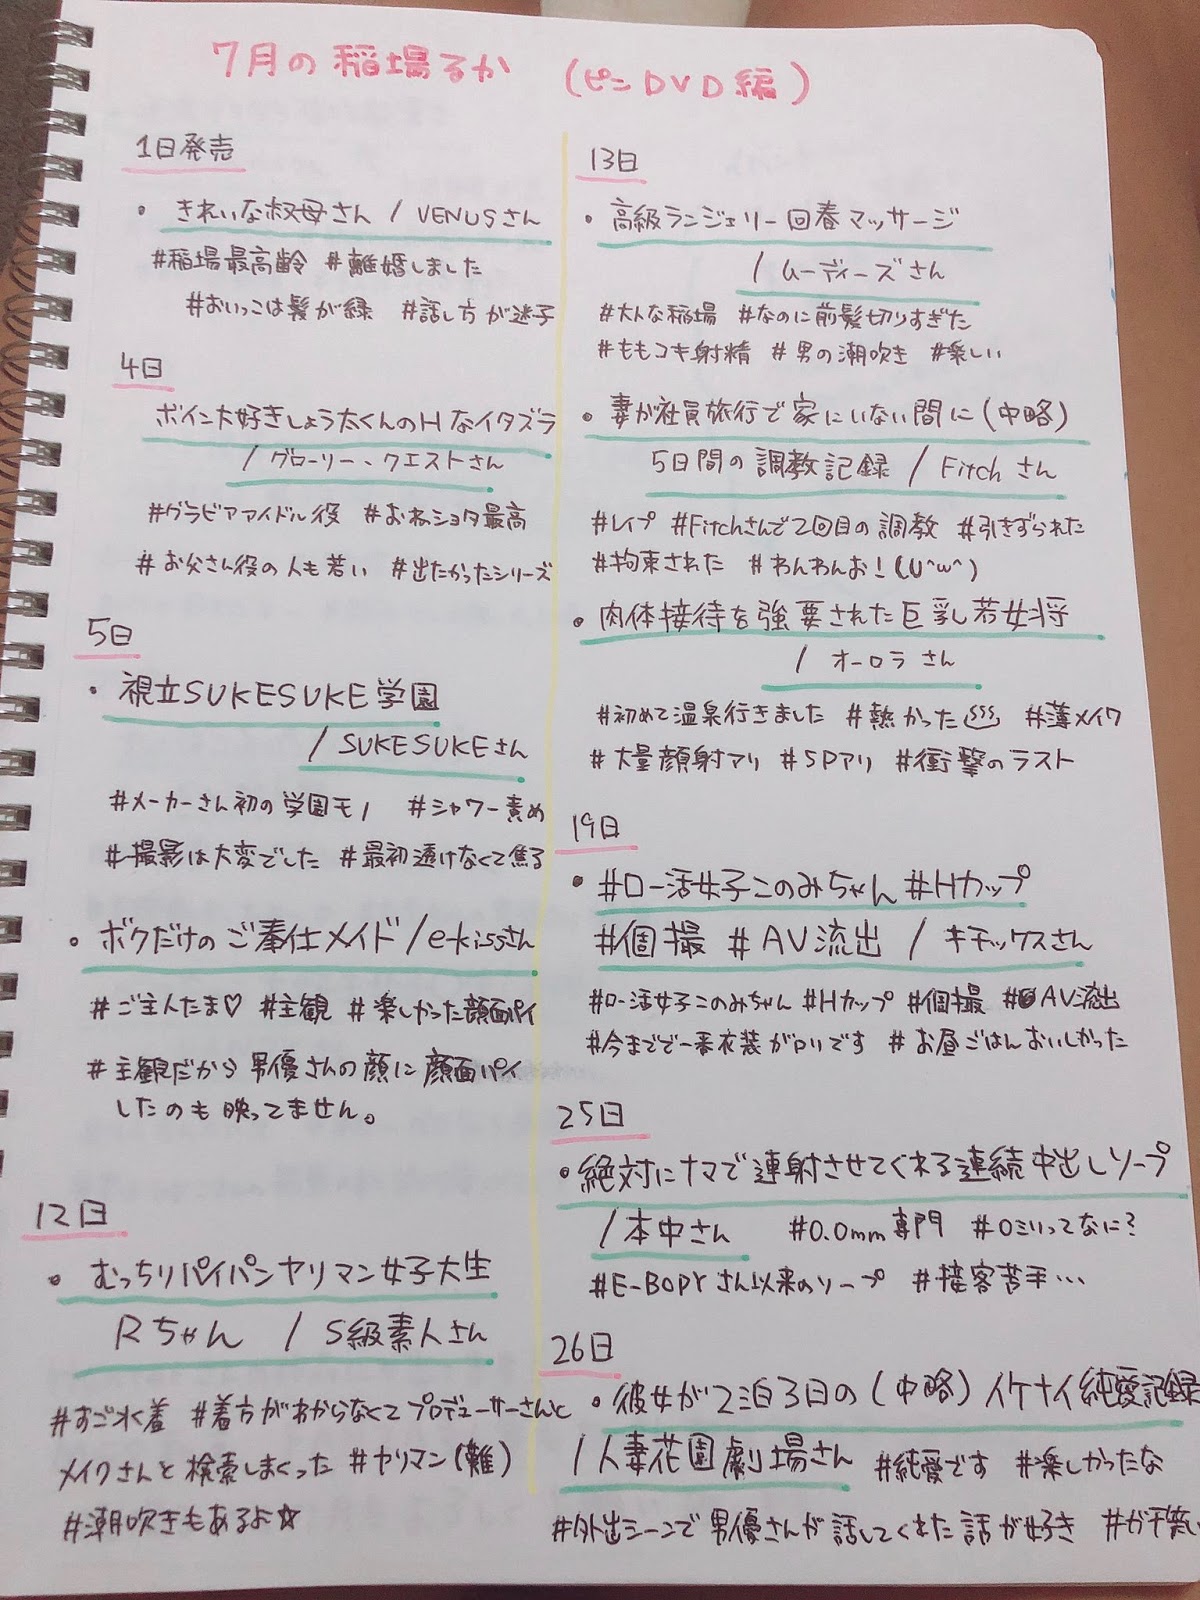 7月の稲場るか (ピンDVD編)
1日発売
・きれいな叔母さん / VENUSさん
#稲場最高齢 #離婚しました
#おいっこは髪が緑 #話し方が迷子
4日
ボイン大好きしょう太くんのHなイタズラ
/ グローリークエストさん
#グラビアアイドル役 #おねショタ最高
#お父さん役の人も若い #出たかったシリーズ
5日
・視立SUKESUKE学園
/ SUKESUKEさん
#メーカーさん初の学園モノ #シャワー責め
#撮影は大変でした #最初透けなくて焦る
・ボクだけのご奉仕メイド/e-kissさん
#ご主人たま♡ #主観 #楽しかった顔面パイ
#主観だから男優さんの顔に顔面パイ
したのも映ってません。
12日
・むっちりパイパンヤリマン女子大生
Rちゃん / S級素人さん
#すご水着 #着方がわからなくてプロデューサーさんと
メイクさんと検索しまくった #ヤリマン(難)
#潮吹きもあるよ☆
13日
・高級ランジェリー回春マッサージ
/ ムーディーズさん
#大人な稲場 #なのに前髪切りすぎた
#ももコキ射精 #男の潮吹き #楽しい
・妻が社員旅行で家にいない間に(中略)
5日間の調教記録 / Fitchさん
#レイプ #Fitchさんで2回目の調教 #引きずられた
#拘束された #わんわんお!(U^w^)
・肉体接待を強要された巨乳若女将
/ オーロラさん
#初めて温泉行きました #熱かった♨ #薄メイク
#大量顔射アリ #SPアリ #衝撃のラスト
19日
・#ロー活女子このみちゃん #Hカップ
#個撮 #AV流出 / キチックスさん
#ロー活女子このみちゃん #Hカップ #個撮 #AV流出
#今までで一番衣装がロリです #お昼ごはんおいしかった
25日
・絶対にナマで連射させてくれる連続中出しソープ
/本中さん #0.0mm専門 #0ミリってなに?
#E-BODYさん以来のソープ #接客苦手…
26日
・彼女が2泊3日の(中略)イケナイ純愛記録
/人妻花園劇場さん #純愛です #楽しかったな
#外出シーンで男優さんが話してくれた話が好き #ガチ笑い